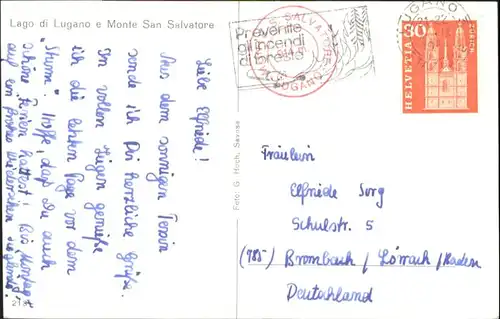 Lago di Lugano e Monte San Salvatore
Liebe Elfriede!
Aus dem sonnigen Tessin
sende ich Dir herzliche Grüße.
In vollen Zügen genieße
ich die letzten Tage vor dem
"Sturm". Hoffe, daß Du auch
schöne Ferien hattest! Bis Montag -
auf ein frohes Wiedersehen
Prevenite
gli incendi
di foreste
S. SALVATORE
LUGANO
LUGANO
HELVETIA
30
Foto: G. Hoch, Savosa
Fräulein
Elfriede Sorg
Schulstr. 5
(785) Brombach / Lörrach / Baden
Deutschland